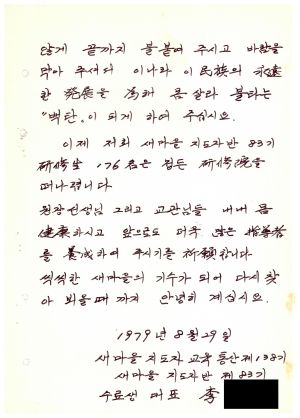 않게 끝까지 불붙여 주시고 바람을
막아 주셔다 이나라 이 民族의 永遠
한 発展을 爲해 몸살라 불타는
"백탄"이 되게 하여 주십시요.
이제 저희 새마을 지도자반 83기
硏修生 176名은 정든 硏修院을
떠나렵니다
원장선생님 그리고 교관님들 내내 몸
健康하시고 앞으로도 더욱 많은 指導者
를 養成하여 주시기를 祈願합니다
씩씩한 새마을의 기수가 되어 다시 찾
아 뵈올때 까지 안녕히 계십시요.
1979年 8月 29일
새마을 지도자 교육 통산 제138기
새마을 지도자반 제83기
수료생 대표 李